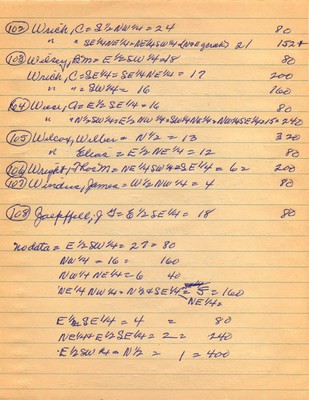 (102) Wrich, C = S½NW¼ = 24 80
" = SE¼NE¼ = NE¼SW¼ 21 152
(103) Wilsey, Bm = E½SW¼ = 18 80
Wrich, C = SE¼ = SE¼NE¼ = 17 200
" " = SW¼ = 16 160
(104) Wise, A = E½SE¼ = 16 80
" N½SW¼ = = 15 = 240
(105) Wilcox, Wilber = N½ = 13 320
" Elias = E½NE¼ = 12 80
(106) Wright, Thos M = NE¼SW¼ = SE¼ = 6 = 200
(107) Windus, James = W½NW¼ = 4 80
(108) Zaepffell, J G = E½SE¼ = 18 80
no data = E½SW¼ = 27 = 80
NW¼ = 16 = 160
NW¼ NE¼ = 6 40
NE¼ NW¼ = N½SE¼ = 5 = 160
NE¼ =
E½ SE¼ = 4 = 80
NE¼ = E½SE¼ = 2 = 240
E½SW¼ = N½ = 1 = 400